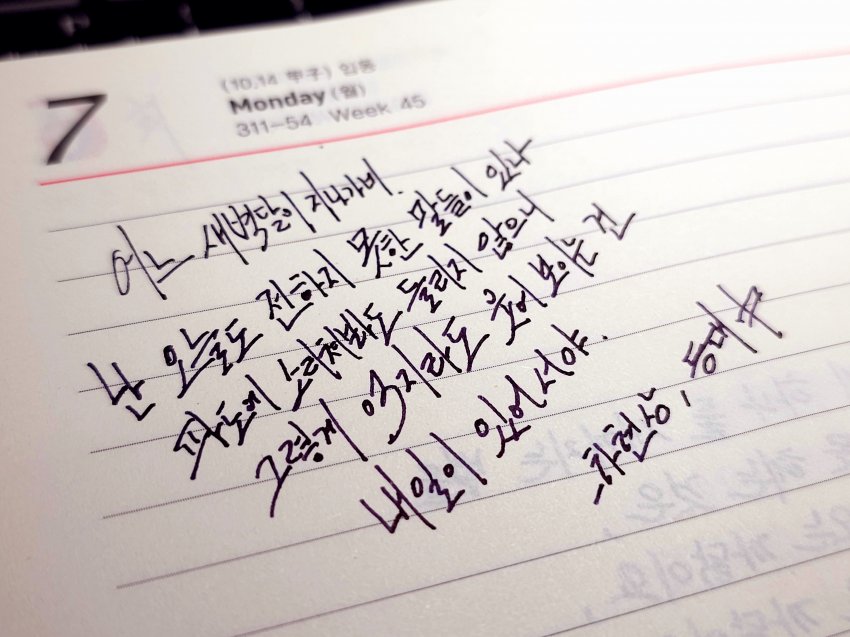 7
(10.14 甲子) 입동
Monday (월)
311-54 Week 45
어느 새벽달이 지나가네.
난 오늘도 전하지 못한 말들이 있나
파도에 소리쳐봐도 들리지 않으니
그렇게 억지라도 웃어 보이는 건
내일이 있어서야.
-하현상, 등대 中